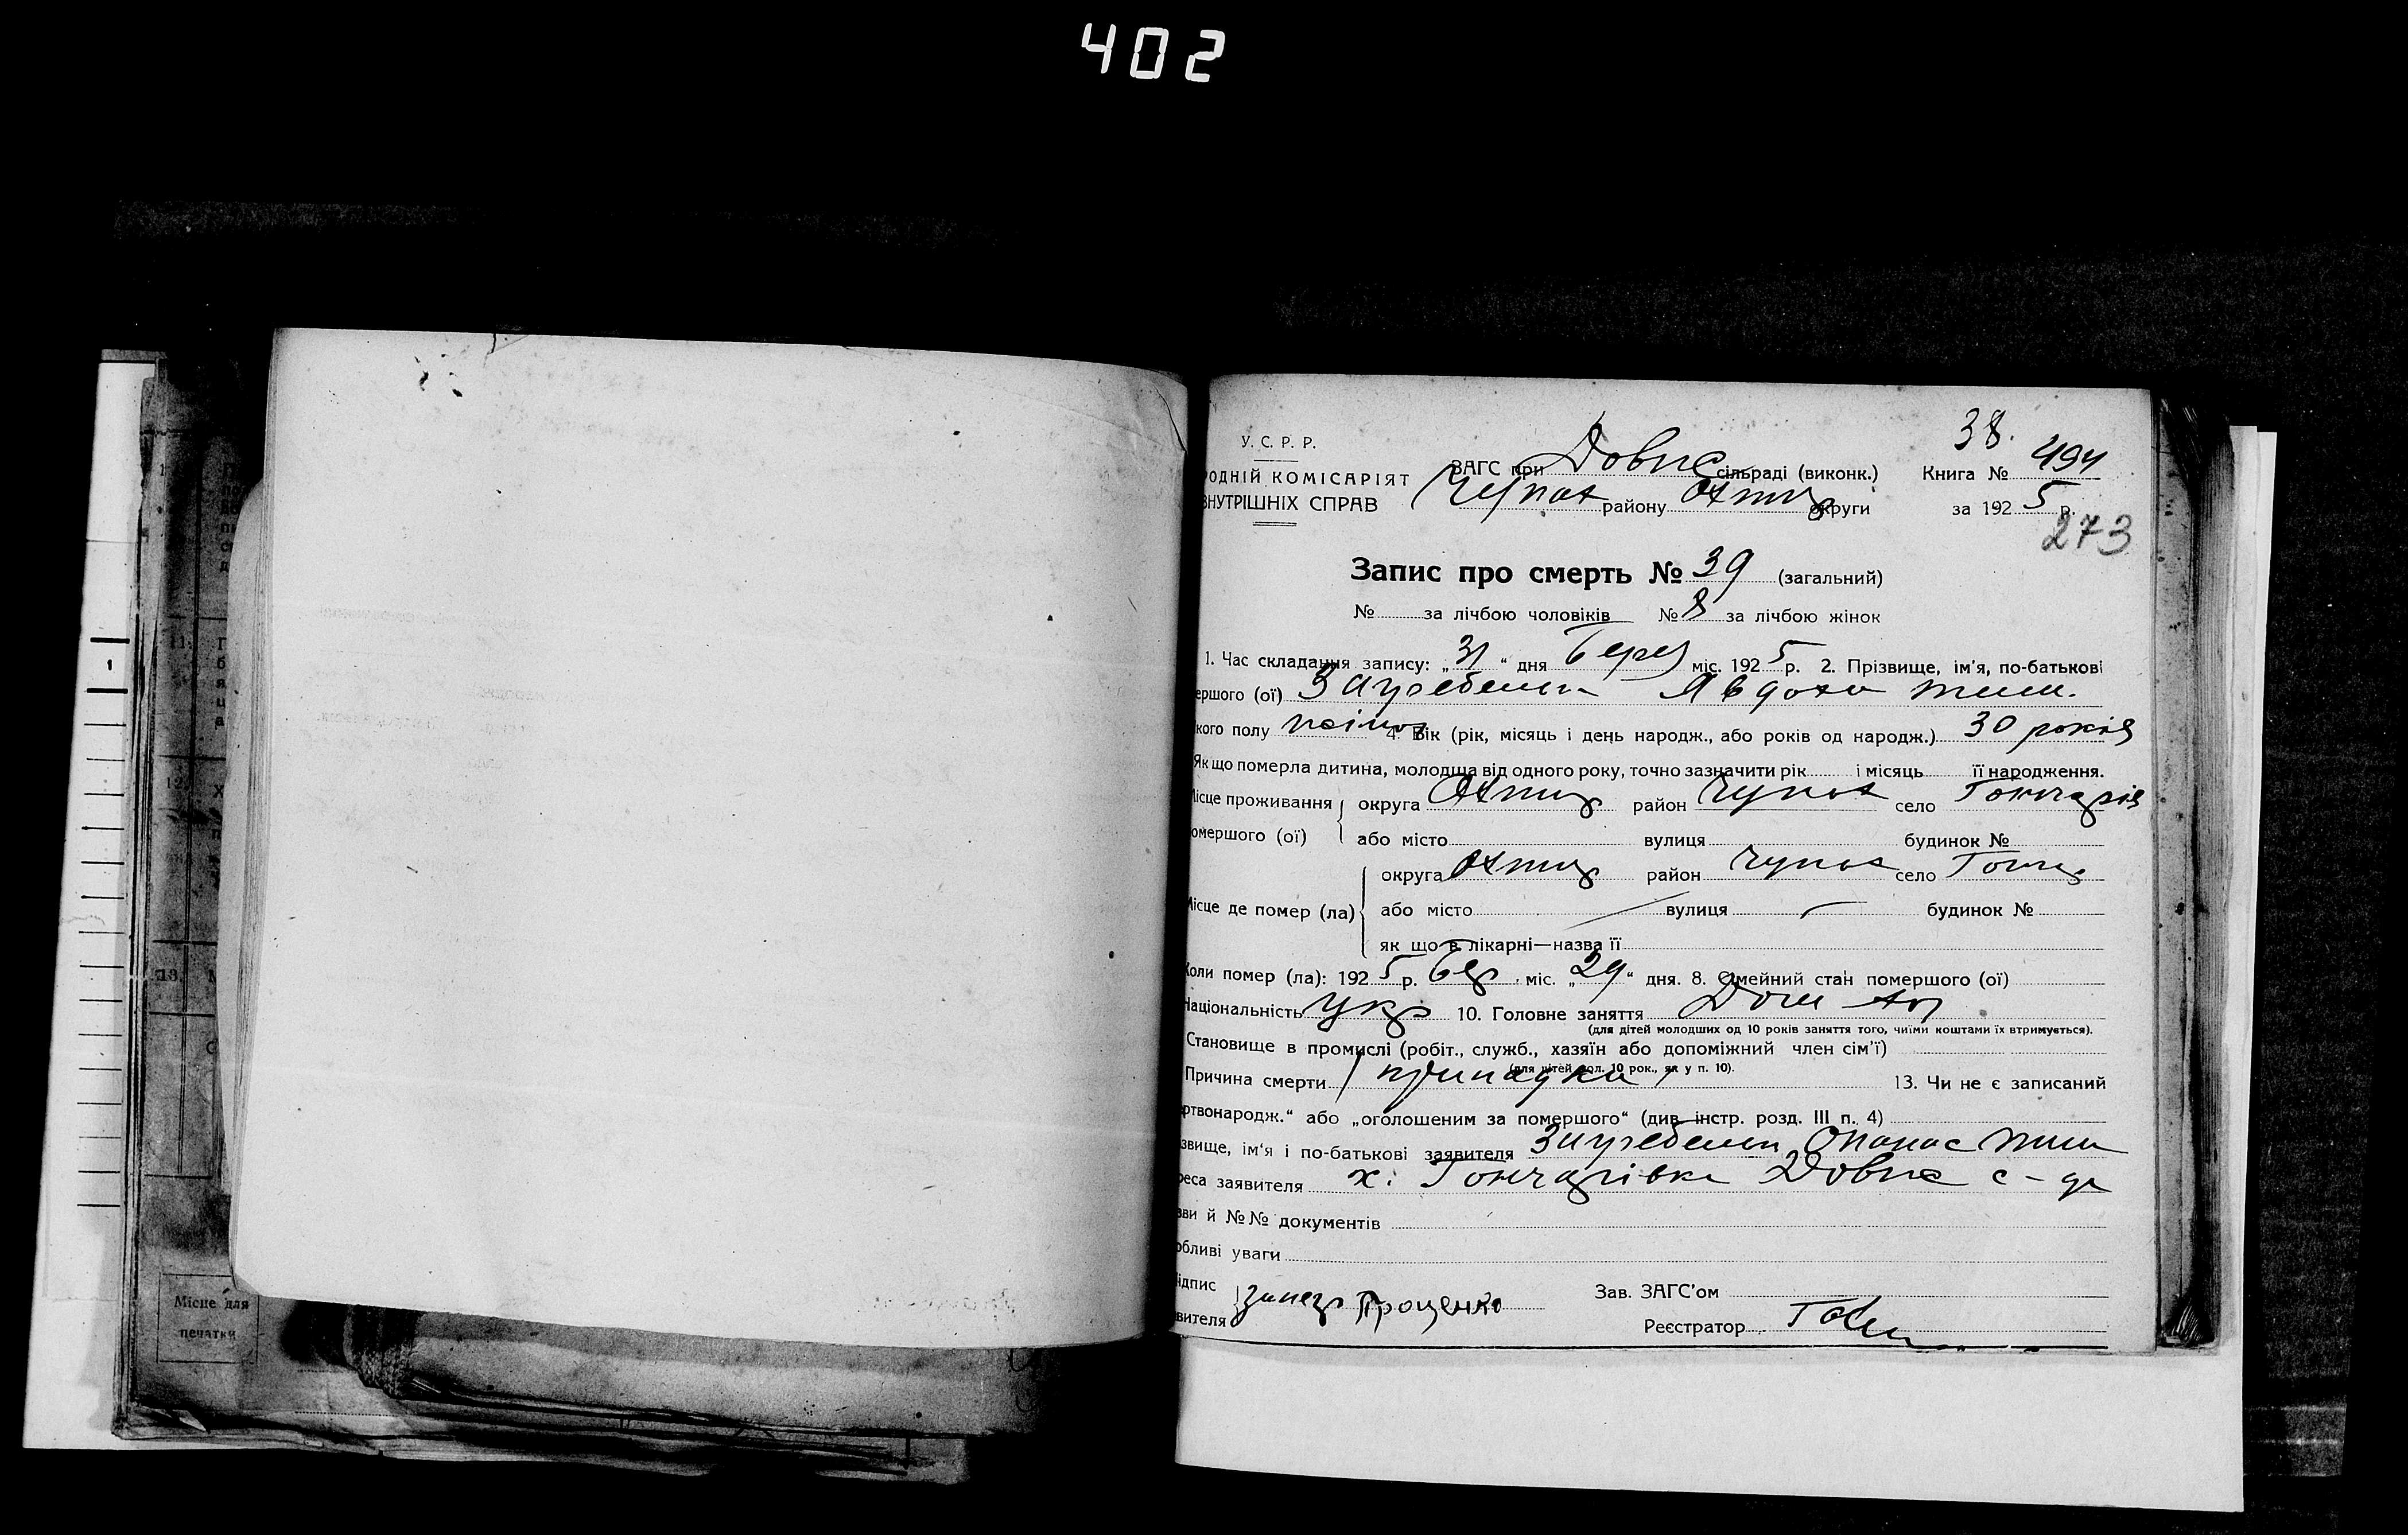 402
38.
У. С. Р. Р.
ЗАГС при Довже сільраді (виконк.) Книга № 494
РОДНІЙ КОМІСАРІЯТ
ВНУТРІШНІХ СПРАВ
Чупах району Охтир округи за 1925 р.
273
Запис про смерть № 39 (загальний)
№ за лічбою чоловіків № 8 за лічбою жінок
1. Час складання запису: „31“ дня берез міс. 1925 р. 2. Прізвище, ім'я, по-батькові
ершого (ої) Загребельн Явдоха тим.
кого полу жіноч 4. Вік (рік, місяць і день народж., або років од народж.) 30 років
Як що померла дитина, молодща від одного року, точно зазначити рік і місяць її народження.
Місце проживання округа Охтир район Чупах село Гончарів
омершого (ої) або місто вулиця будинок №
округа Охтир район Чупах село Гонча
Місце де помер (ла) або місто вулиця будинок №
як що в лікарні—назва її
Коли помер (ла): 1925 р. бер. міс. „29“ дня. 8. Сімейний стан помершого (ої)
Національність укр 10. Головне заняття Дом
(для дітей молодших од 10 років заняття того, чиїми коштами їх втримується).
Становище в промислі (робіт., служб., хазяїн або допоміжний член сім'ї)
(для дітей мол. 10 рок., як у п. 10).
Причина смерти припадки 13. Чи не є записаний
ртвонародж.“ або „оголошеним за помершого“ (див. інстр. розд. III п. 4)
звище, ім'я і по-батькові заявителя Загребельн Опанас тим
реса заявителя х: Гончарівка Довже с-ди
зви й №№ документів
обливі уваги
ідпис Зав. ЗАГС'ом
вителя Проценко
Реєстратор
Місце для
печатки